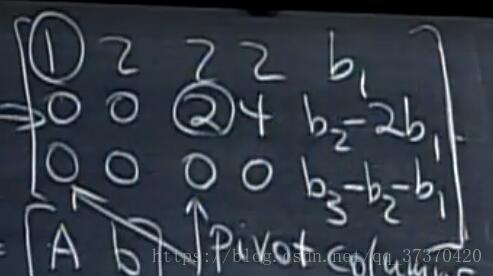 1 2 2 2 b₁
0 0 2 4 b₂-2b₁
0 0 0 0 b₃-b₂-b₁
= [A b Pivot columns
https://blog.csdn.net/qq_37370420